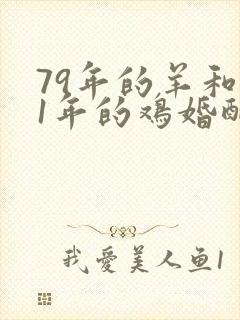 79年的羊和
1年的鸡婚
我爱美人鱼1